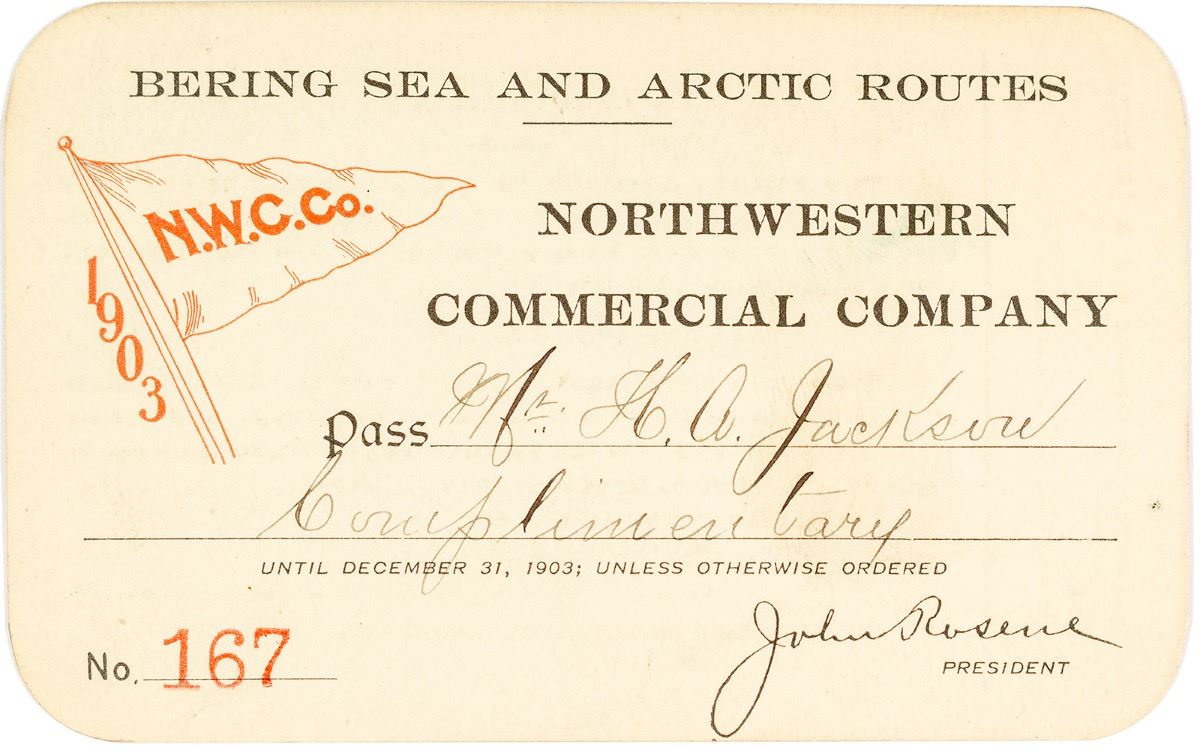 BERING SEA AND ARCTIC ROUTES
N.W.C.Co.
1903
NORTHWESTERN
COMMERCIAL COMPANY
Pass Mr. H. A. Jackson
Complimentary
UNTIL DECEMBER 31, 1903; UNLESS OTHERWISE ORDERED
John Rosene
PRESIDENT
No. 167